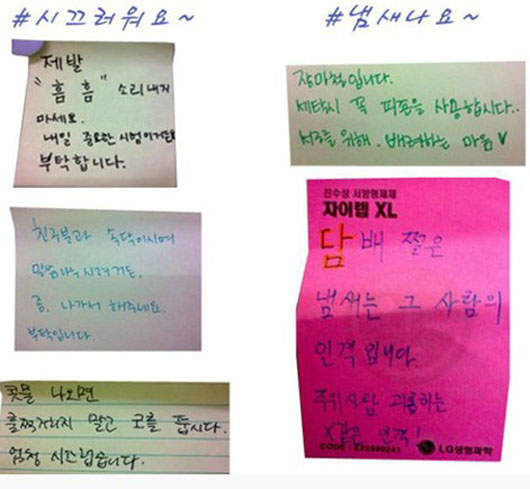 #시끄러워요~
제발
"흠흠" 소리내지
마세요.
내일 중요한 시험이거든요
부탁합니다.
친구분과 속닥이시며
말씀나누시려거든,
좀. 나가서 해주세요.
부탁입니다.
콧물 나오면
훌쩍거리지 말고 코를 풉시다.
엄청 시끄럽습니다.
#냄새나요~
장마철입니다.
세탁시 꼭 피죤을 사용합시다..
서로를 위해. 배려하는 마음♥
전수상 서방형제제
자이렙 XL
담배 쩔은
냄새는 그 사람의
인격입니다.
주위사람 괴롭히는
X같은 인격!
CODE :
LG생명과학